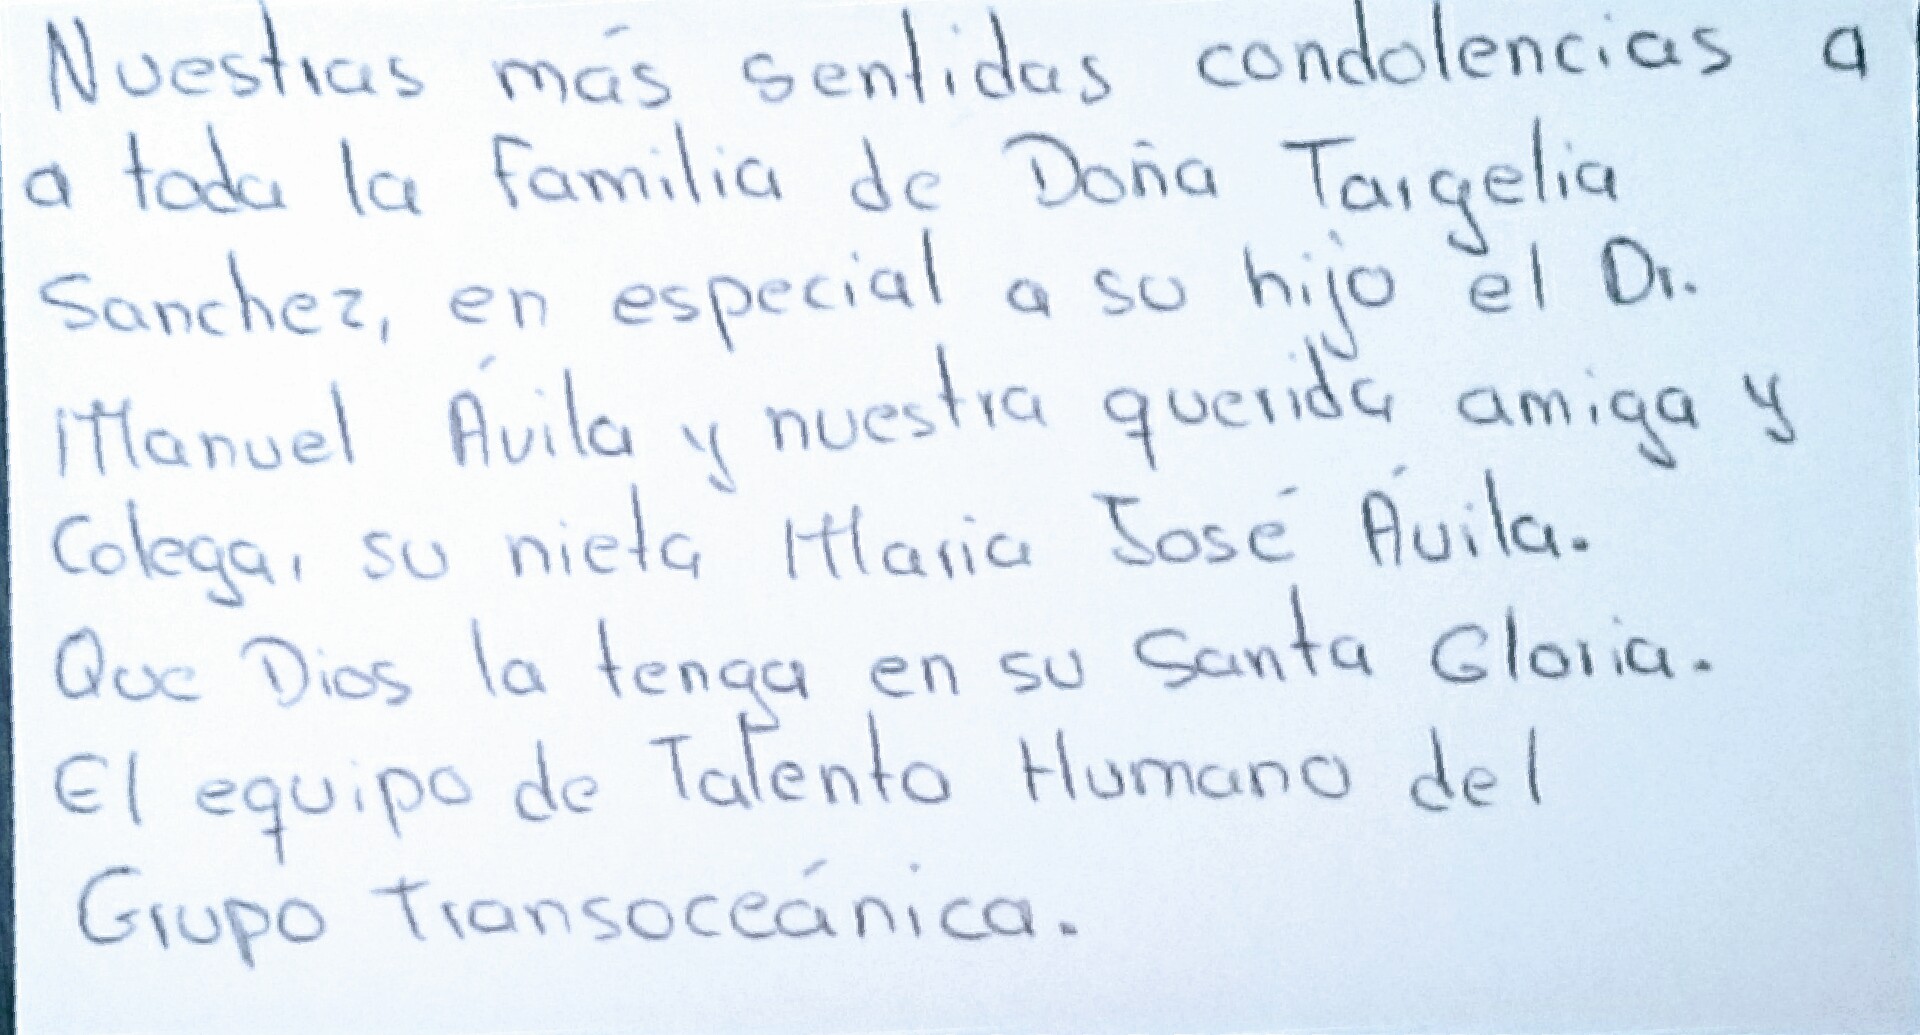 Nuestras más sentidas condolencias a
a toda la familia de Doña Targelia
Sanchez, en especial a su hijo el Dr.
Manuel Ávila y nuestra querida amiga y
Colega, su nieta Maria José Ávila.
Que Dios la tenga en su Santa Gloria.
El equipo de Talento Humano del
Grupo Transoceánica.